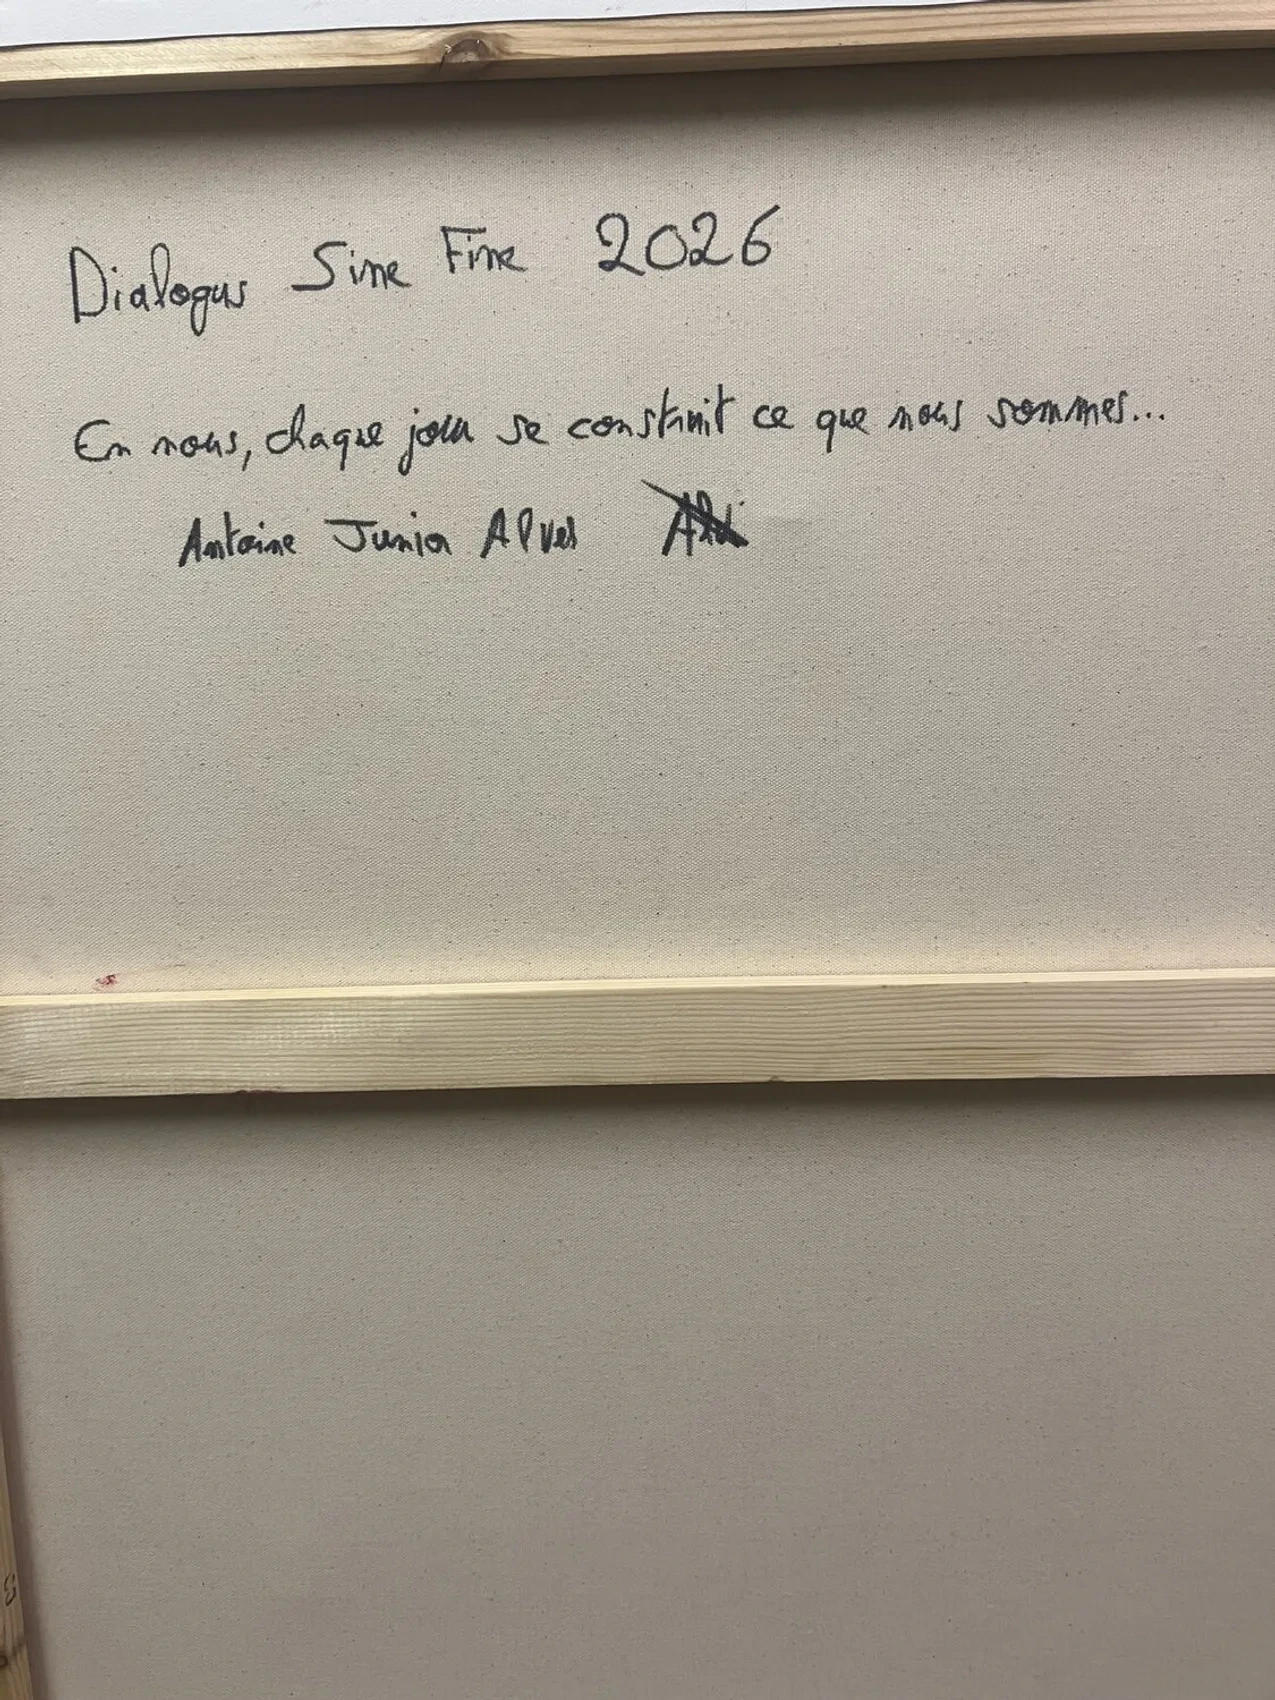 Dialogus Sine Fine 2026
En nous, chaque jour se construit ce que nous sommes...
Antoine Junior Alves